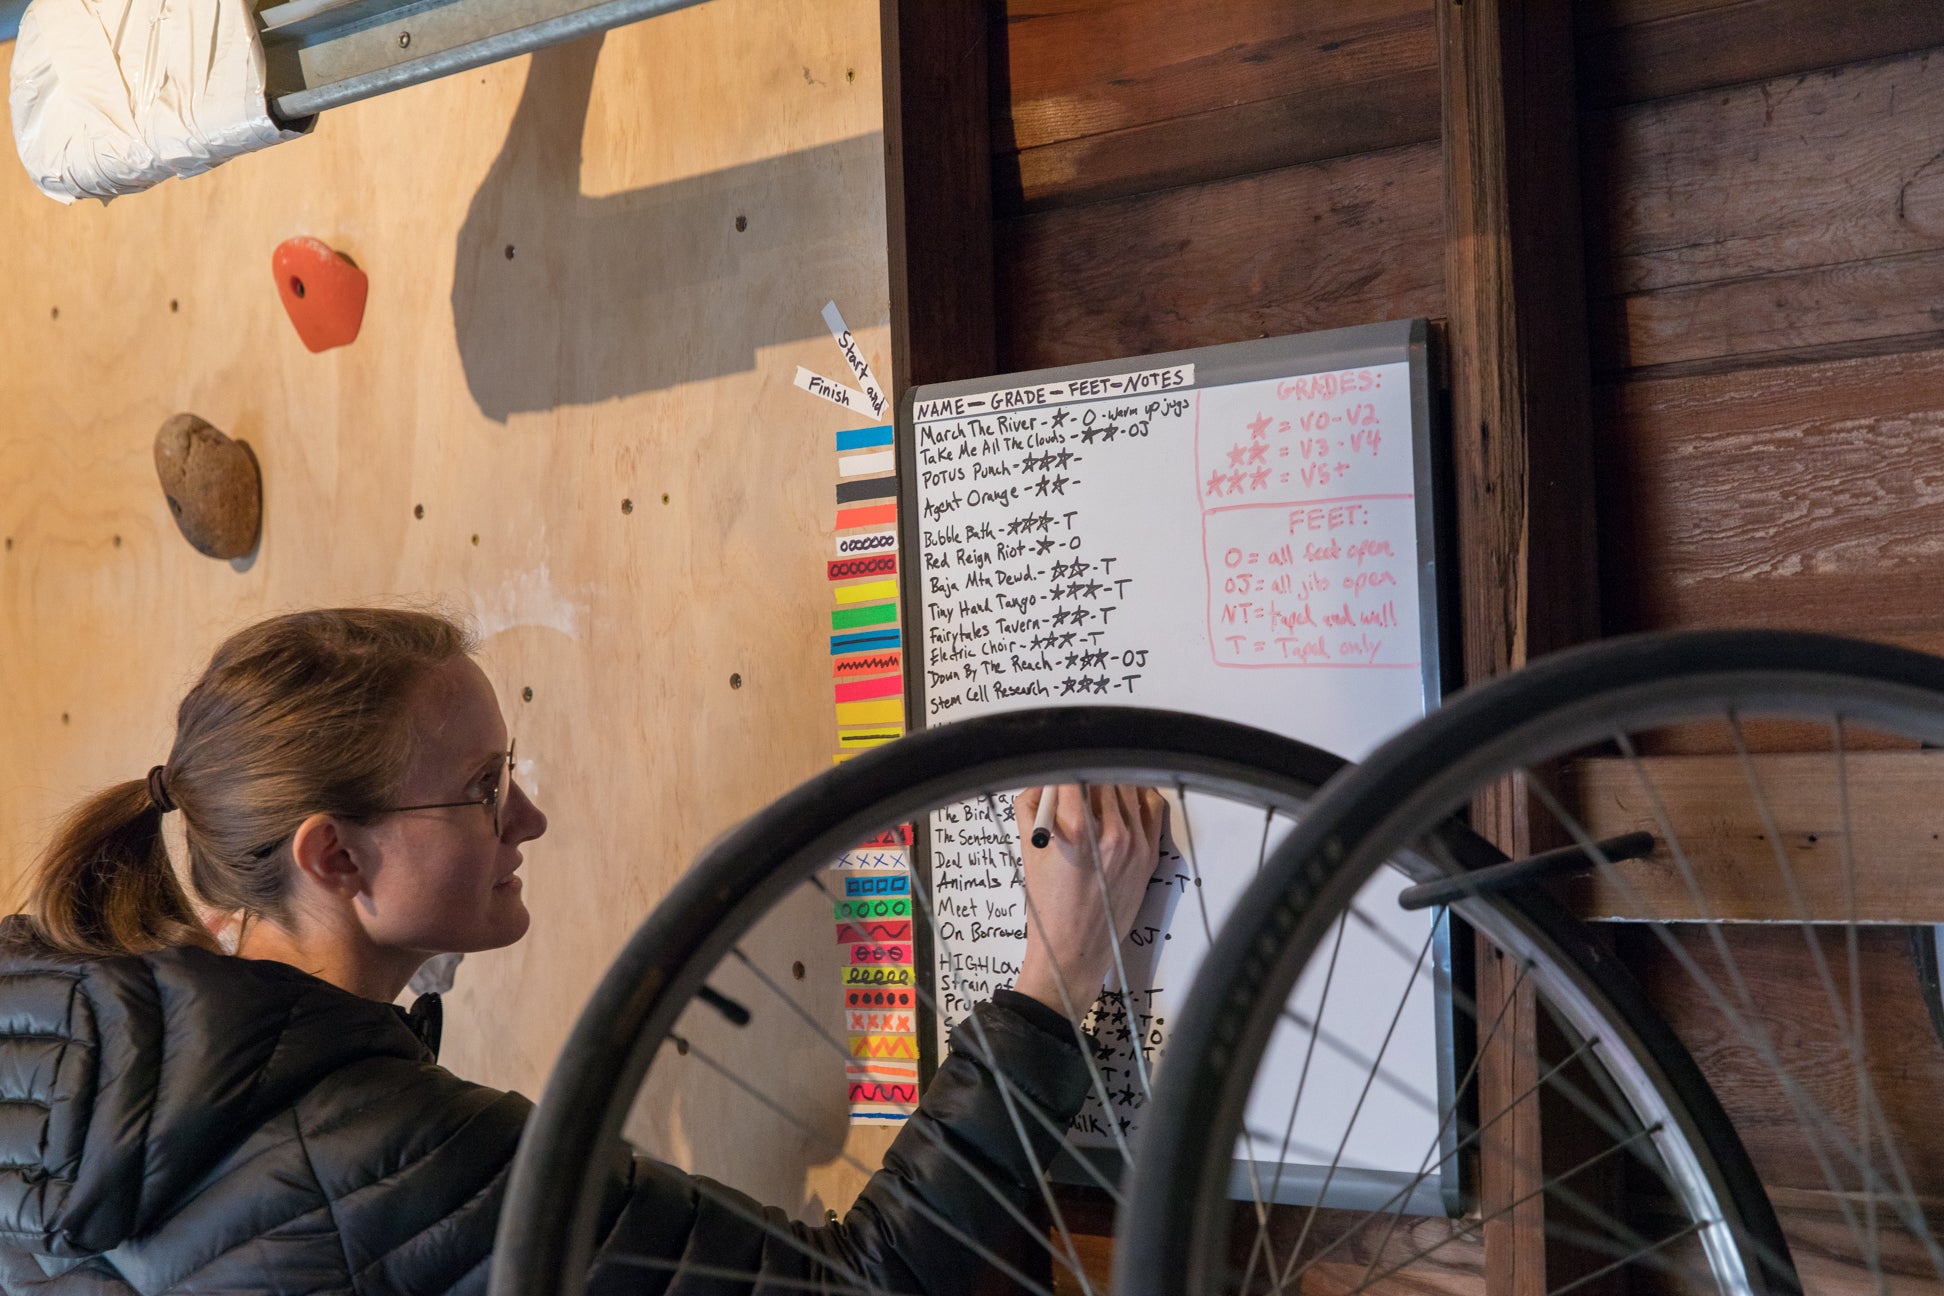 Start and
Finish
NAME - GRADE - FEET - NOTES
March The River - ★ - O - warm up jugs
Take Me All The Clouds - ★★ - OJ
POTUS Punch - ★★★ -
Agent Orange - ★★ -
Bubble Bath - ★★★ - T
Red Reign Riot - ★ - O
Baja Mtn Dewd. - ★★ - T
Tiny Hand Tango - ★★★ - T
Fairytales Tavern - ★★ - T
Electric Choir - ★★★ - T
Down By The Reach - ★★★ - OJ
Stem Cell Research - ★★★ - T
The Bird - ★
The Sentence -
Deal With The
Animals
- T
Meet Your
On Borrowed
OJ
HIGH Low
Strain of
★★ - T
★★ T
★ - O
★ - NT
T
★
Milk - ★ -
GRADES:
★ = V0 - V2
★★ = V3 - V4
★★★ = V5+
FEET:
O = all feet open
OJ = all jibs open
NT = taped and wall
T = Taped only